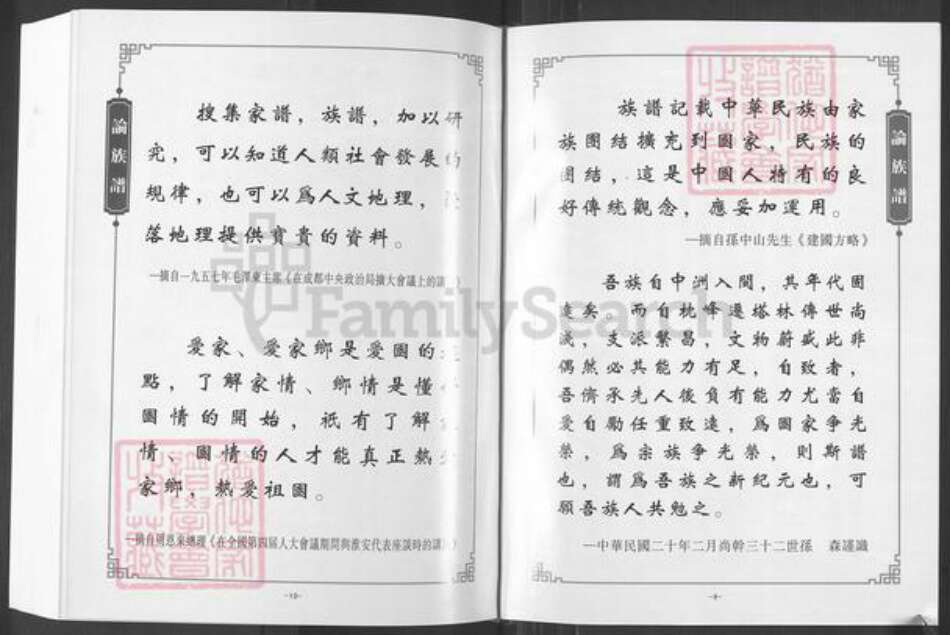 論族譜
搜集家譜，族譜，加以研
究，可以知道人類社會發展的
規律，也可以爲人文地理，
落地理提供寶貴的資料。
—摘自一九五七年毛澤東主席《在成都中央政治局擴大會議上的講
愛家、愛家鄉是愛國的
點，了解家情、鄉情是懂
國情的開始，祇有了解
情、國情的人才能真正熱
家鄉，熱愛祖國。
—摘自周恩來總理《在全國第四屆人大會議期間與淮安代表座談時的講
-10-
論族譜
族譜記載中華民族由家
族團結擴充到國家，民族的
團結，這是中國人特有的良
好傳統觀念，應妥加運用。
—摘自孫中山先生《建國方略》
吾族自中洲入閩，其年代固
遠矣，而自枕峰遷塔林傳世尚
淺，支派繁昌，文物蔚盛此非
偶然必其能力有足，自致者，
吾儕承先人後負有能力尤當自
愛自勵任重致遠，爲國家爭光
榮，爲宗族爭光榮，則斯譜
也，謂爲吾族之新紀元也，可
願吾族人共勉之。
—中華民國二十年二月尚幹三十二世孫 森謹識
FamilySearch